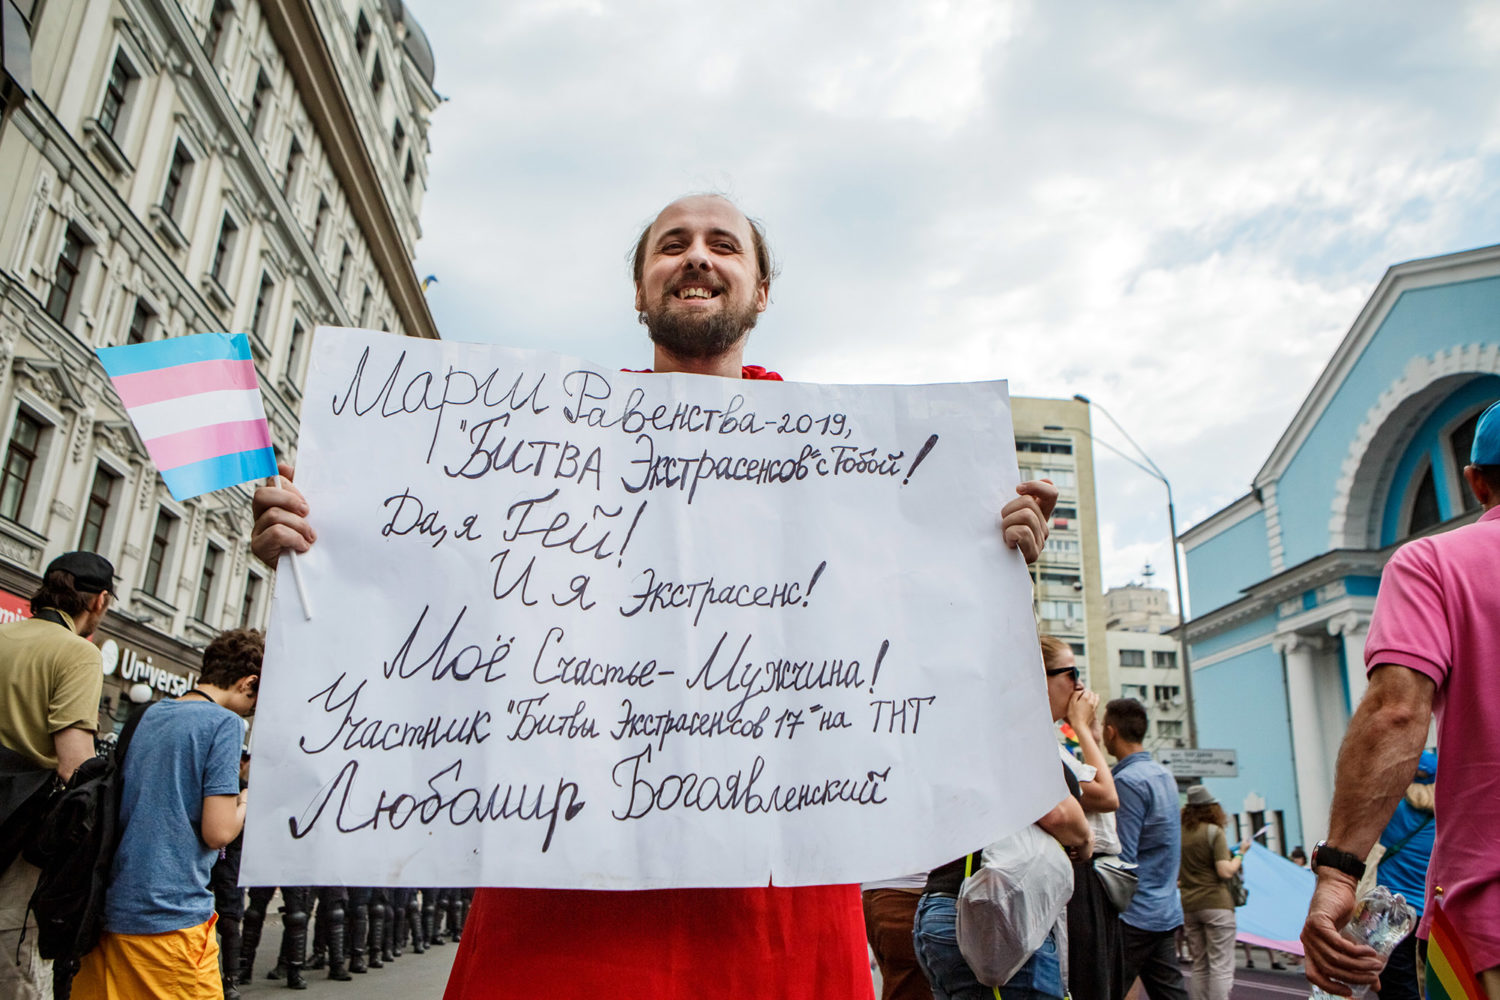 Марш Равенства-2019,
"БИТВА Экстрасенсов" с Тобой!
Да, я Гей!
И я Экстрасенс!
Моё Счастье - Мужчина!
Участник "Битвы Экстрасенсов 17" на ТНТ
Любомир Богоявленский
Universal